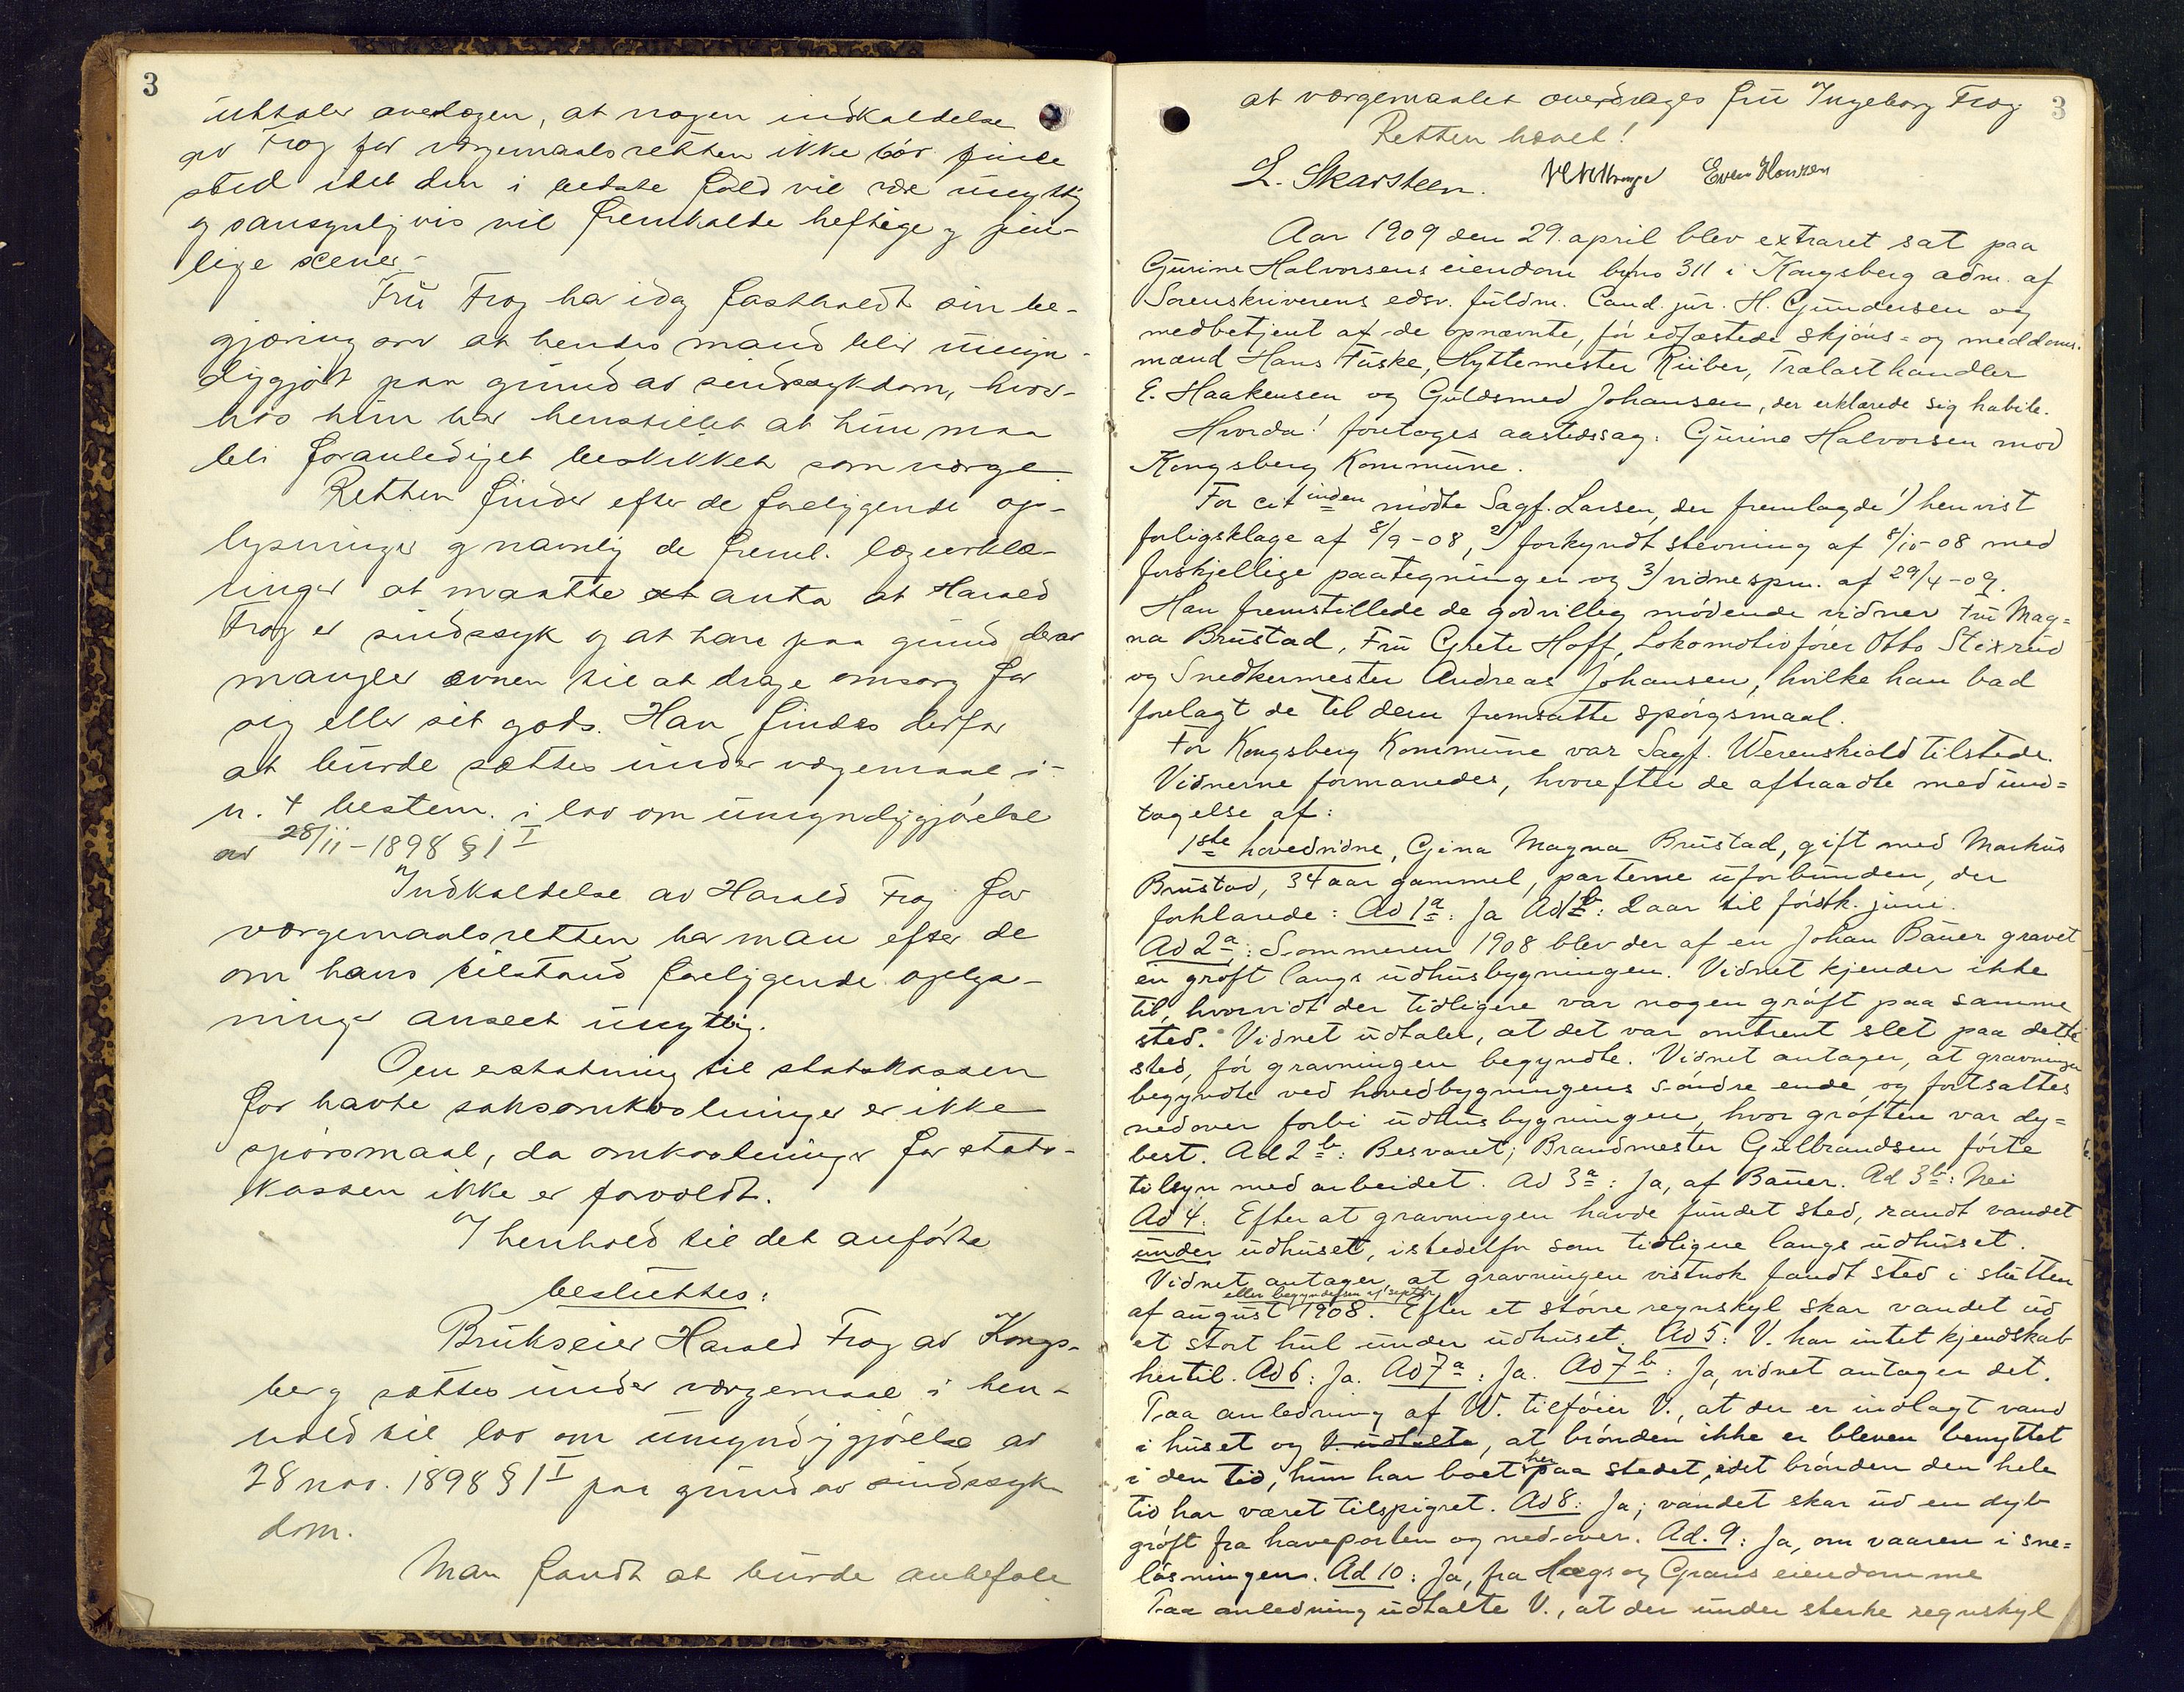 3
uttaler overlægen, at nogen indkaldelse
av Frog for vergemaalsretten ikke bör finde
sted idet den i bedste fald vil være unyttig
og sansynligvis vil fremkalde heftige og pin-
lige scener.-
Fru Frog har idag fastholdt sin be-
gjæring om at hendes mand blir umyn-
diggjört paa grund av sindssykdom, hvor-
hos hun har henstillet at hun maa
bli foranlediget beskikket som verge.
Retten finder efter de foreliggende op-
lysninger og navnlig de freml. lægeerklæ-
ringer at maatte anta at Harald
Frog er sindssyk og at han paa grund derav
mangler ævnen til at drage omsorg for
sig eller sit gods. Han findes derfor
at burde sættes under vergemaal i
h. t bestem. i lov om umyndiggjörelse
av 28/11-1898 § 1 I
Indkaldelse av Harald Frog for
vergemaalsretten har man efter de
om hans tilstand foreliggende oplys-
ninger anseet unyttig.
Om erstatning til statskassen
for havte saksomkostninger er ikke
spörsmaal, da omkostninger for stats-
kassen ikke er forvoldt.
I henhold til det anförte
besluttes:
Brukseier Harald Frog av Kongs-
berg sættes under vergemaal i hen-
hold til lov om umyndiggjörelse av
28 nov. 1898 § 1 I paa grund av sindssyk-
dom.
Man fandt at burde anbefale
3
at værgemaalet overdrages fru Ingeborg Frog
Retten hævet!
L. Skarsteen. Even Hansen
Aar 1909 den 29. april blev extraret sat paa
Gurine Halvorsens eiendom byno 311 i Kongsberg adm. af
Sorenskriverens edsv. fuldm. Cand. jur. H. Gundersen og
medbetjent af de opnævnte, för edfæstede skjöns= og meddoms-
mænd Hans Fuske, Hyttemester Riiber, Trælasthandler
E. Haakensen og Guldsmed Johansen, der erklærede sig habile.
Hvorda! foretoges aastedssag: Gurine Halvorsen mod
Kongsberg Kommune.
For citinden mödte Sagf. Larsen, der fremlagde 1) henvist
forligsklage af 8/9-08, 2) forkyndt stevning af 8/10-08 med
forskjellige paategninger og 3) vidnespm. af 29/4-09.
Han fremstillede de godvillig mödende vidner Fru Mag=
na Brustad, Fru Grete Hoff, Lokomotivförer Otto Stixrud
og Snedkermester Andreas Johansen, hvilke han bad
forelagt de til dem fremsatte spörgsmaal.
For Kongsberg Kommune var Sagf. Werenskiold tilstede.
Vidnerne formanedes, hvorefter de aftraadte med und=
tagelse af:
1ste hovedvidne, Gina Magna Brustad, gift med Markus
Brustad, 34 aar gammel, parterne uforbunden, der
forklarede: Ad 1a: Ja Ad 1b: 2 aar til förstk. juni.
Ad 2a: Sommeren 1908 blev der af en Johan Bauer gravet
en gröft langs udhusbygningen. Vidnet kjender ikke
til, hvorvidt der tidligere var nogen gröft paa samme
sted. Vidnet udtaler, at det var omtrent slet paa dette
sted, för gravningen begyndte. Vidnet antager, at gravningen
begyndte ved hovedbygningens söndre ende og fortsattes
nedover forbi udhusbygningen, hvor gröften var dy=
best. Ad 2b: Besvaret; Brandmester Gulbrandsen förte
tilsyn med arbeidet. Ad 3a: Ja, af Bauer. Ad 3b: Nei
Ad 4: Efter at gravningen havde fundet sted, randt vandet
under udhuset, istedetfor som tidligere langs udhuset.
Vidnet antager, at gravningen vistnok fandt sted i slutten
eller begyndelsen af septbr.
af august 1908. Efter et större regnskyl skar vandet ud
et stort hul under udhuset. Ad 5: V. har intet kjendskab
hertil. Ad 6: Ja. Ad 7a: Ja. Ad 7b: Ja, vidnet antager det.
Paa anledning af W. tilföier V., at der er indlagt vand
i huset og V. udtalte, at brönden ikke er bleven benyttet
i den tid, hun har boet her paa stedet, idet brönden den hele
tid har været tilspigret. Ad 8: Ja; vandet skar ud en dyb
gröft fra haveporten og nedover. Ad. 9: Ja, om vaaren i sne=
lösningen. Ad 10: Ja, fra Hægs og Grans eiendomme
Paa anledning udtalte V., at der under sterke regnskyl